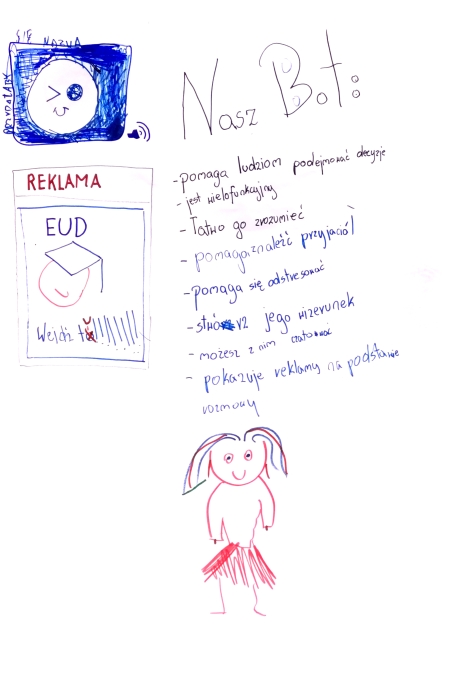 SIĘ
Nasz Bot:
- pomaga ludziom podejmować decyzje
- jest wielofunkcyjny
- Łatwo go zrozumieć
- pomaga znaleźć przyjaciół
- pomaga się odstresować
- stwórz jego wizerunek
- możesz z nim czatować
- pokazuje reklamy na podstawie
rozmowy
REKLAMA
EUD
Wejdź tu